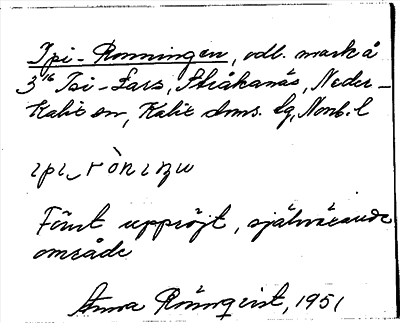 Ipi-Ronningen, odl. mark å
3¹⁶ Isi-Lars, Stråkanäs, Neder-
Kalix sn, Kalix dms. lg, Nonb. l
ipi_ròniŋu
Förut uppröjt, självväxande
område
Anna Rönnqvist, 1951